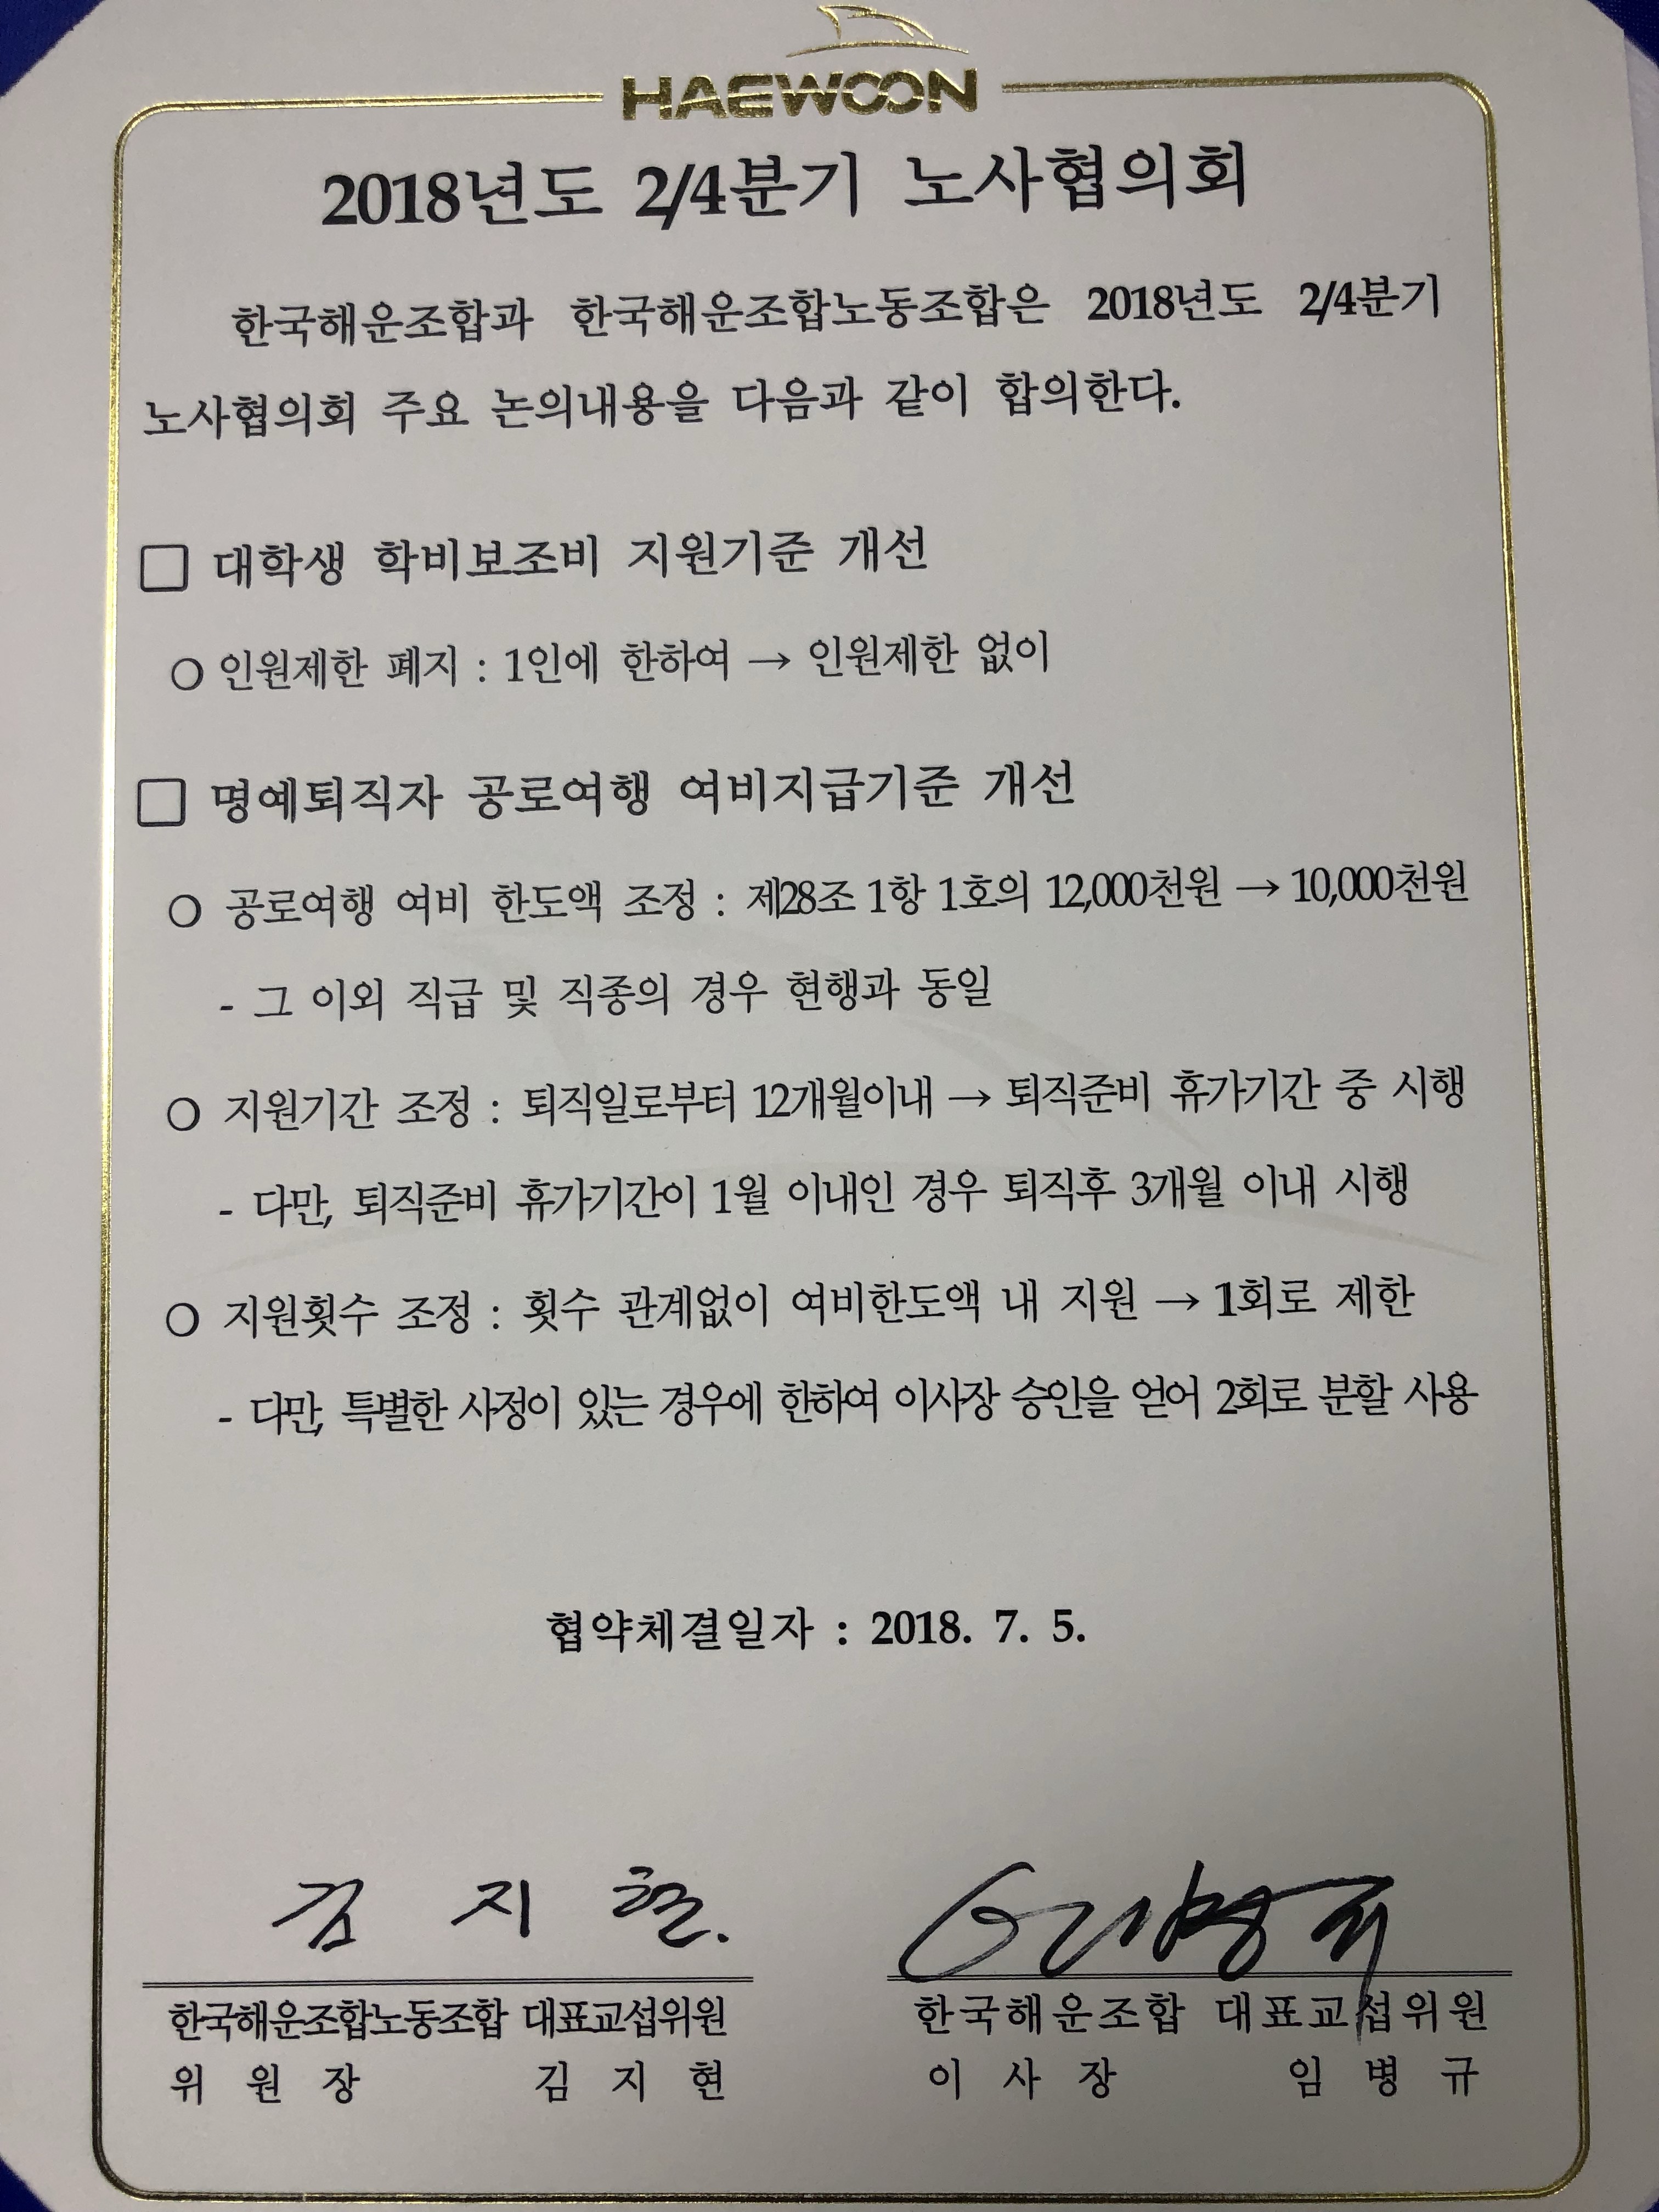 HAEWOON
2018년도 2/4분기 노사협의회
한국해운조합과 한국해운조합노동조합은 2018년도 2/4분기
노사협의회 주요 논의내용을 다음과 같이 합의한다.
□ 대학생 학비보조비 지원기준 개선
○ 인원제한 폐지 : 1인에 한하여 → 인원제한 없이
□ 명예퇴직자 공로여행 여비지급기준 개선
○ 공로여행 여비 한도액 조정 : 제28조 1항 1호의 12,000천원 → 10,000천원
- 그 이외 직급 및 직종의 경우 현행과 동일
○ 지원기간 조정 : 퇴직일로부터 12개월이내 → 퇴직준비 휴가기간 중 시행
- 다만, 퇴직준비 휴가기간이 1월 이내인 경우 퇴직후 3개월 이내 시행
○ 지원횟수 조정 : 횟수 관계없이 여비한도액 내 지원 → 1회로 제한
- 다만, 특별한 사정이 있는 경우에 한하여 이사장 승인을 얻어 2회로 분할 사용
협약체결일자 : 2018. 7. 5.
김 지 현.
한국해운조합노동조합 대표교섭위원
위 원 장 김 지 현
한국해운조합 대표교섭위원
이 사 장 임 병 규